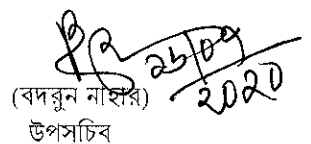 ২৮/০৭/২০২০
(বদরুন নাহার)
উপসচিব